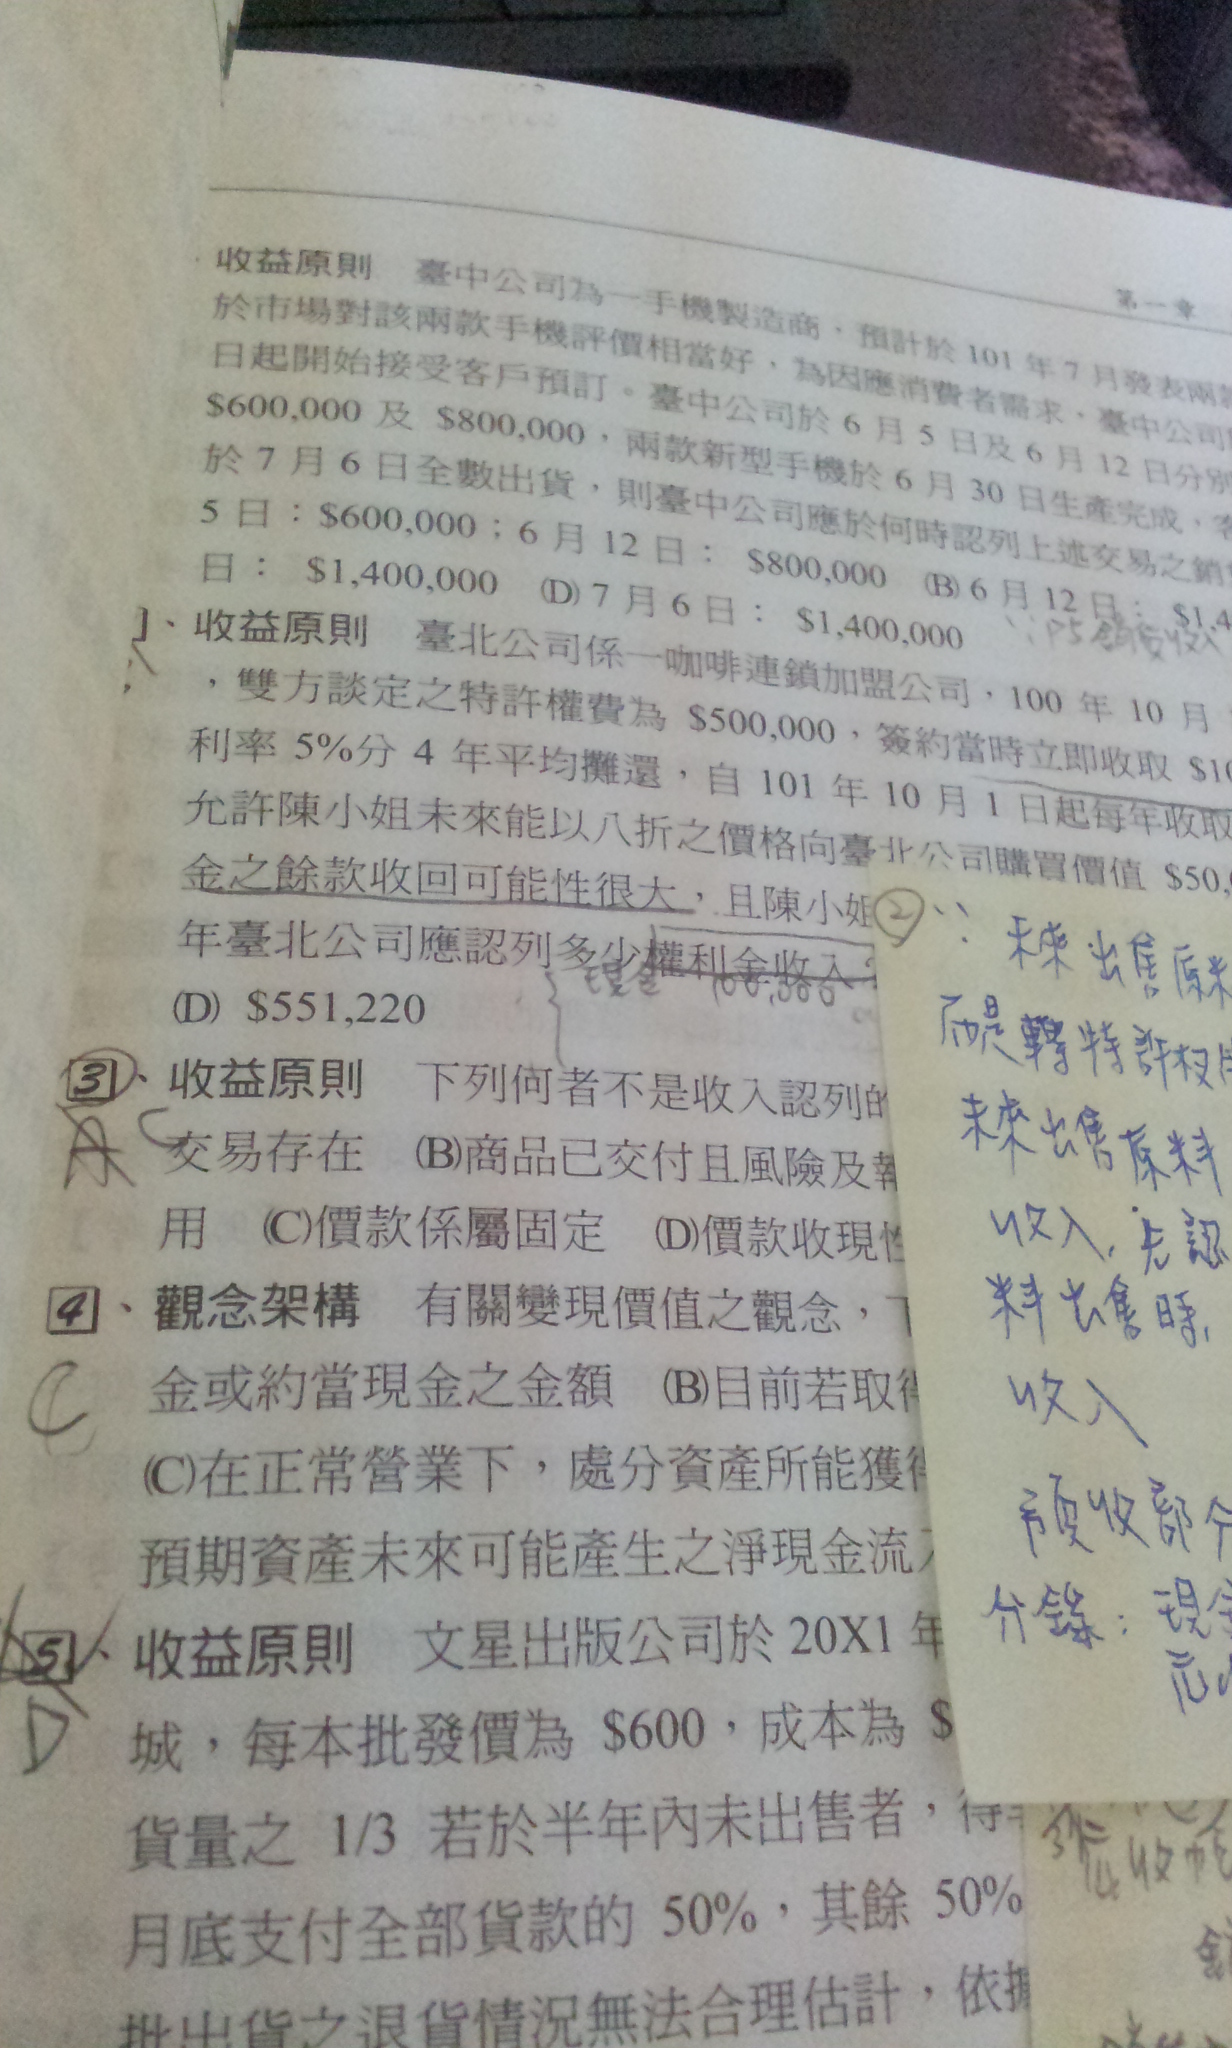 第一章
收益原則 臺中公司為一手機製造商，預計於 101 年 7 月發表兩
於市場對該兩款手機評價相當好，為因應消費者需求，臺中公司
日起開始接受客戶預訂。臺中公司於 6 月 5 日及 6 月 12 日分別
$600,000 及 $800,000，兩款新型手機於 6 月 30 日生產完成，
於 7 月 6 日全數出貨，則臺中公司應於何時認列上述交易之銷
5 日：$600,000；6 月 12 日： $800,000 (B) 6 月 12 日： $1,4
日： $1,400,000 (D) 7 月 6 日： $1,400,000
、收益原則 臺北公司係一咖啡連鎖加盟公司，100 年 10 月
，雙方談定之特許權費為 $500,000，簽約當時立即收取 $10
利率 5%分 4 年平均攤還，自 101 年 10 月 1 日起每年收取
允許陳小姐未來能以八折之價格向臺北公司購買價值 $50,
金之餘款收回可能性很大，且陳小姐
年臺北公司應認列多少權利金收入
現金 100,000
(D) $551,220
3、收益原則 下列何者不是收入認列的
A C
交易存在 (B)商品已交付且風險及
用 (C)價款係屬固定 (D)價款收現性
4、觀念架構 有關變現價值之觀念，
C
金或約當現金之金額 (B)目前若取得
(C)在正常營業下，處分資產所能獲得
預期資產未來可能產生之淨現金流
5、收益原則 文星出版公司於 20X1 年
D
城，每本批發價為 $600，成本為 $
貨量之 1/3 若於半年內未出售者，得
月底支付全部貨款的 50%，其餘 50%
批出貨之退貨情況無法合理估計，依據
② ∵ 未來出售原料
而是轉特許权
未來出售原料
收入，先認
料出售時，
收入
預收部分
分錄：現金